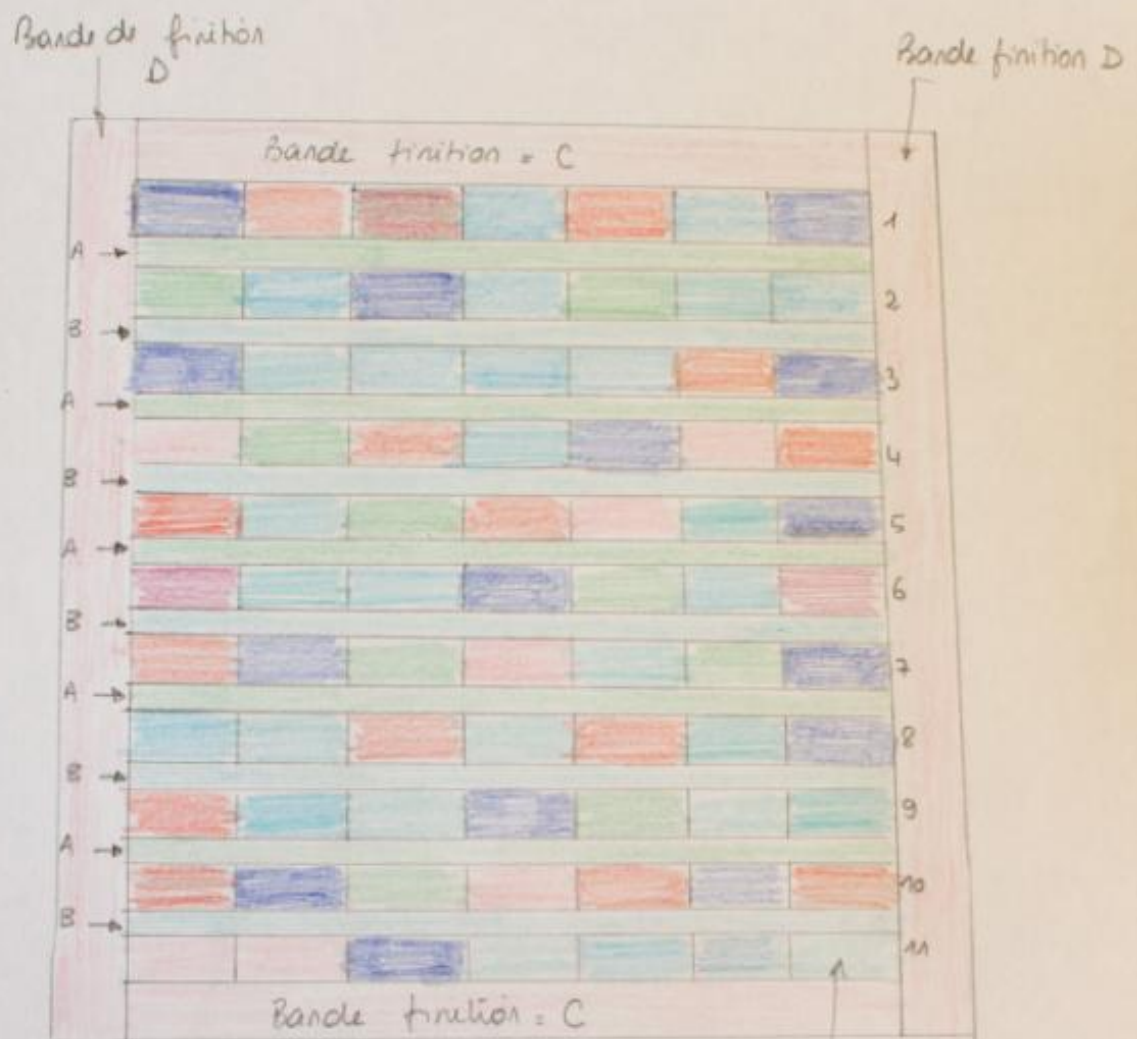 Bande de finition
D
Bande finition D
Bande finition = C
1
A
2
B
3
A
4
B
5
A
6
B
7
A
8
B
9
A
10
B
11
Bande finition = C